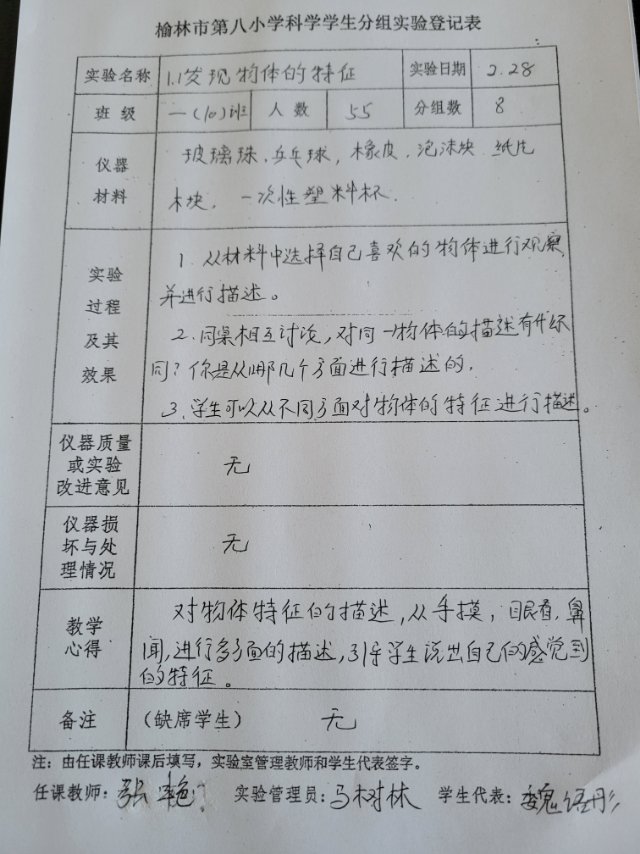 榆林市第八小学科学学生分组实验登记表
实验名称 1.1发现物体的特征 实验日期 2.28
班级 一(10)班 人数 55 分组数 8
仪器材料 玻璃珠、乒乓球,橡皮,泡沫块 纸片
木块、一次性塑料杯.
实验过程及其效果 1. 从材料中选择自己喜欢的物体进行观察
并进行描述。
2. 同桌相互讨论,对同一物体的描述有什么不
同?你是从哪几个方面进行描述的.
3. 学生可以从不同方面对物体的特征进行描述。
仪器质量或实验改进意见 无
仪器损坏与处理情况 无
教学心得 对物体特征的描述,从手摸,眼看,鼻
闻,进行多方面的描述,引导学生说出自己的感觉到
的特征。
备注 (缺席学生) 无
注:由任课教师课后填写,实验室管理教师和学生代表签字。
任课教师:张艳 实验管理员:马树林 学生代表:魏